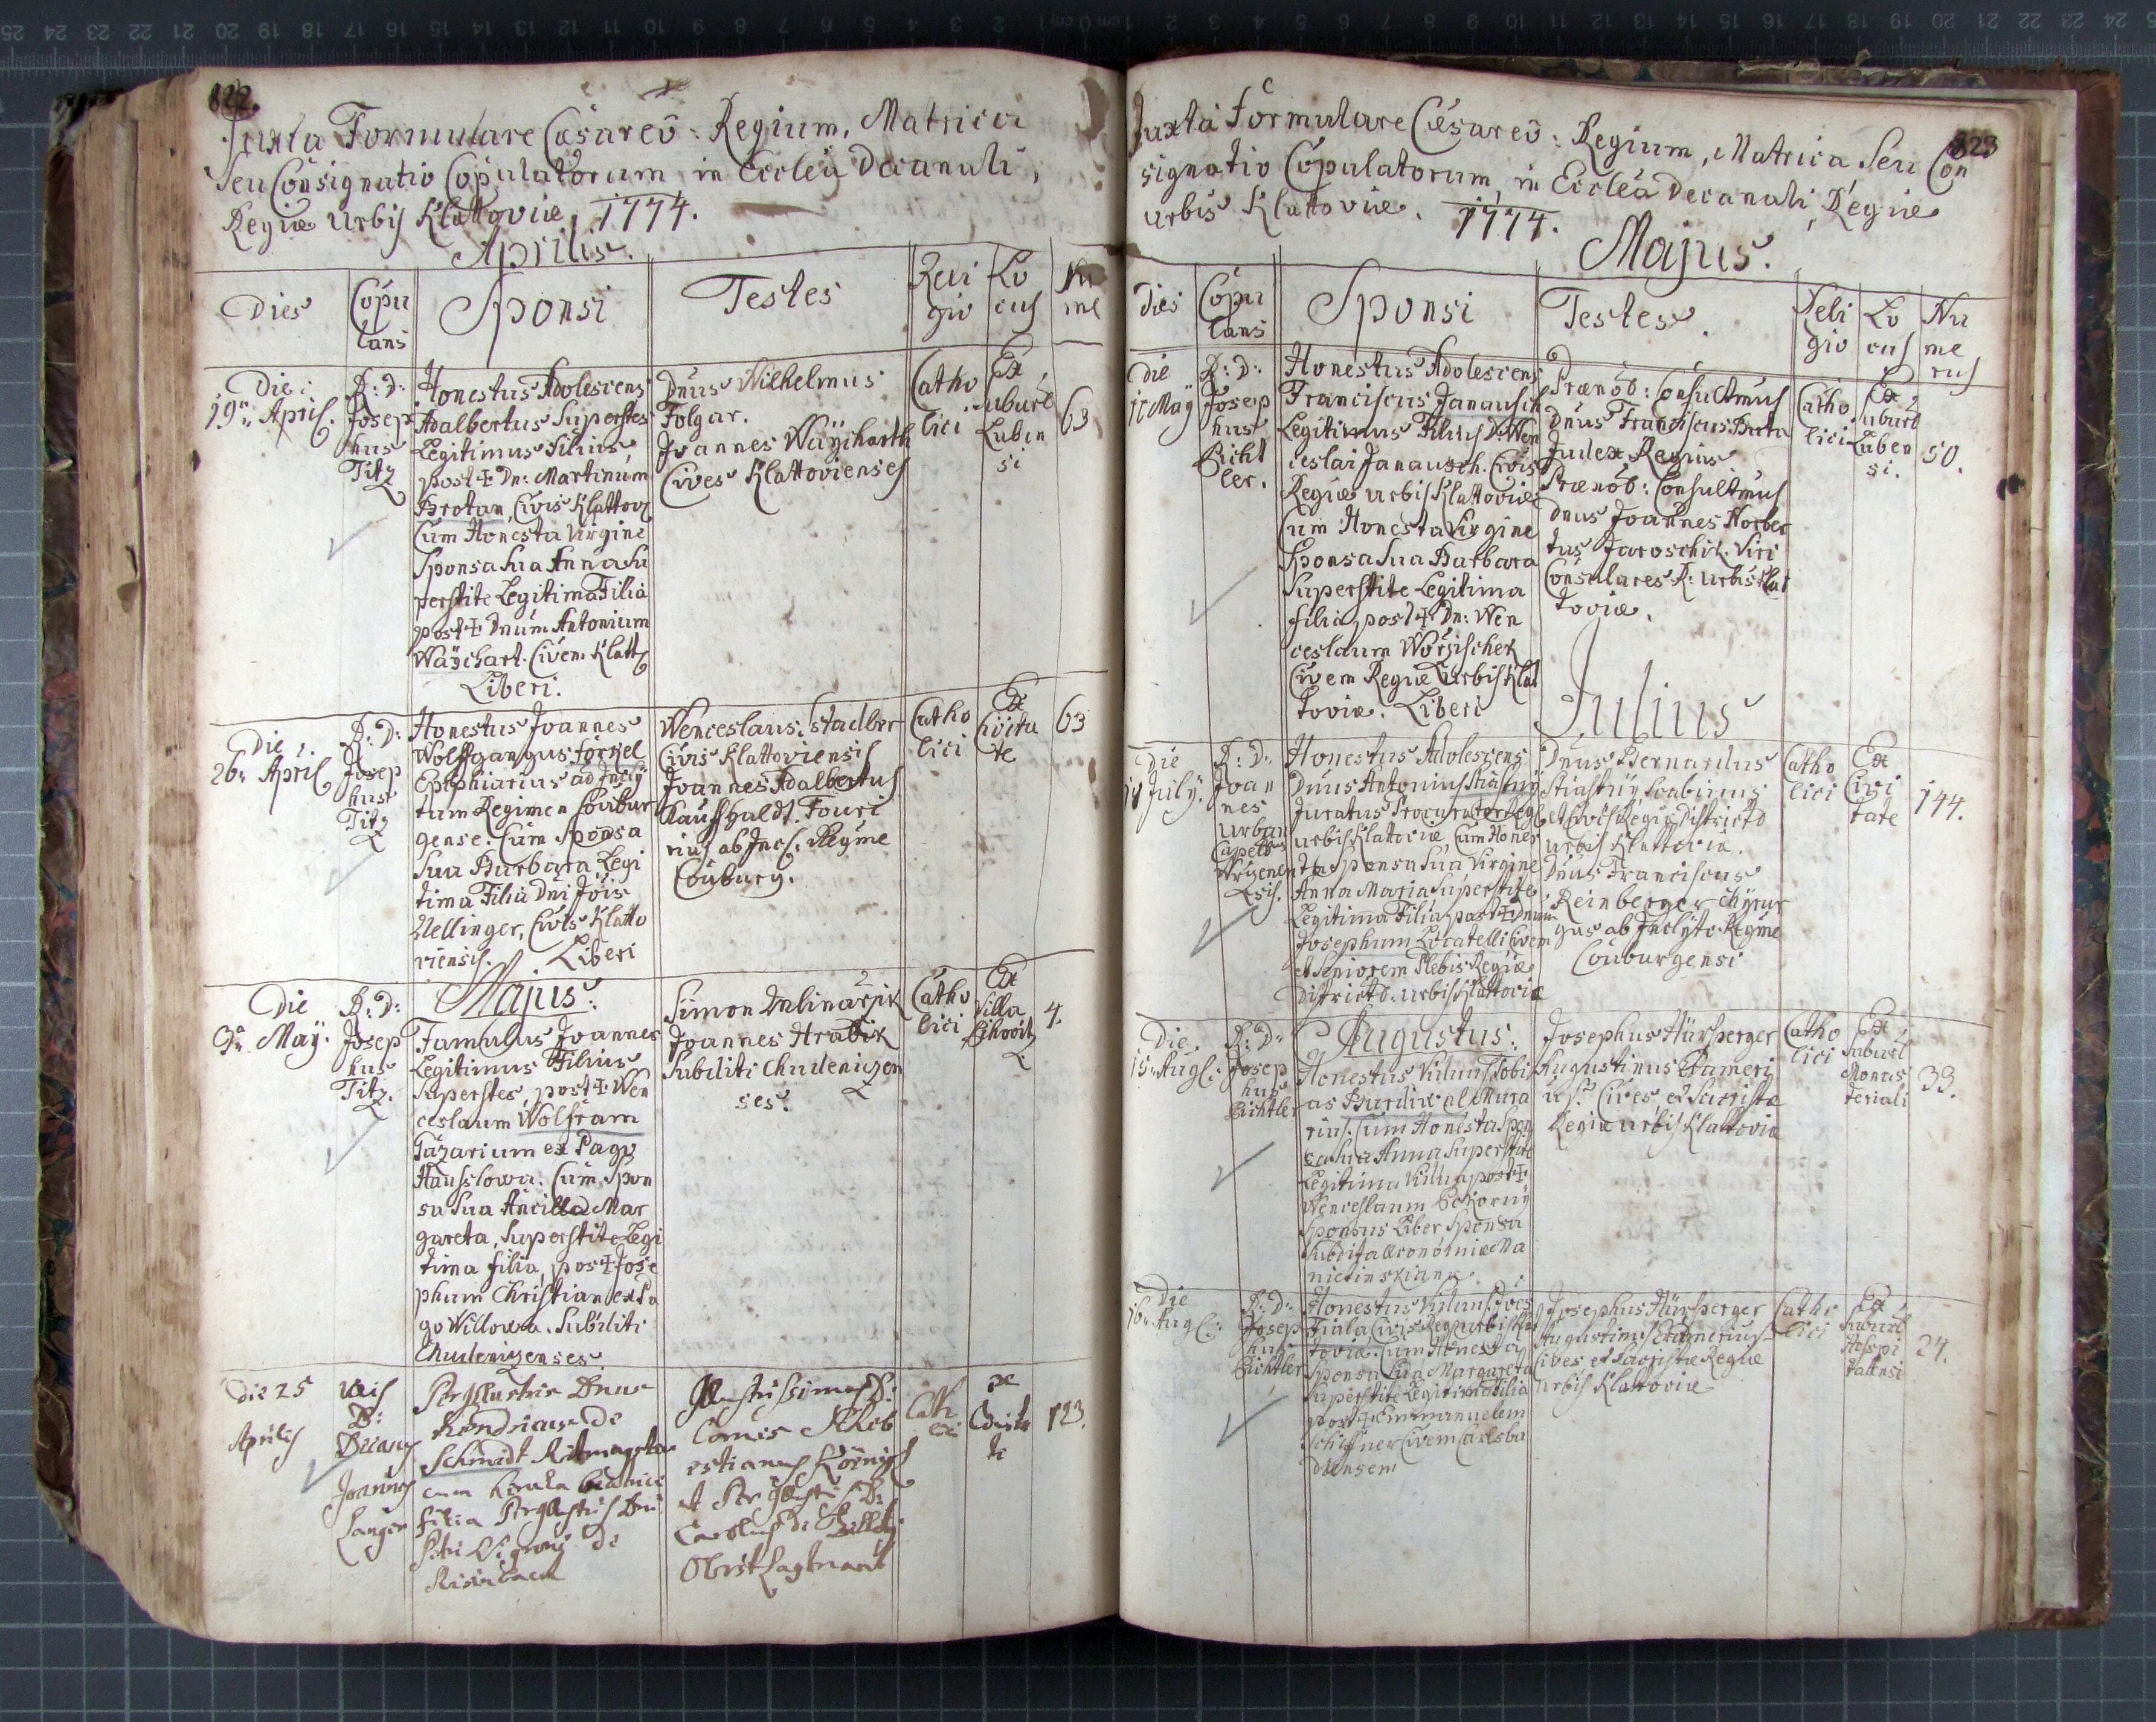 822.
Juxta Formulare Cæsareõ: Regium, Matrica
Seu Consignatio Copulatorum, in Ecclẽa Decanali,
Regiæ Urbis Klattoviæ, 1774.
Aprilis.
Dies
Copu
lans
Sponsi
Testes
Reli
gio
Lo
cus
Nu
me
Die
19a Apris.
R: D:
Josep
hus
Titz
Honestus Adolescens
Adalbertus Superstes
Legitimus Filius,
post ‡ Dn: Martinum
Brotan, Civis Klattov
Cum Honesta Virgine
Sponsa Sua Anna Su
perstite Legitima Filia
post ‡ Dnum Antonium
Waÿchart. Civem Klatt
Liberi.
Dnus Wilhelmus
Folgar.
Joannes Waÿcharth
Cives Klattovienses
Catho
lici
Ex
suburb
Luben
si
63
Die
26a Apris
R: D:
Josep
hus
Titz
Honestus Joannes
Wolffgangus
Ephiphiarius ad Incly
tum Regimen Coubur
gense. Cum Sponsa
Sua Barbara Legi
tima Filia Dni Jõis
Uellinger, Civis Klatto
viensis. Liberi
Wenceslaus Stadler
Civis Klattoviensis
Joannes Adalbertus
Kauffhaldt. Fouri
rius ab Incl: Regime
Couburg.
Catho
lici
Ex
Civita
te
63
Die
9a May.
R: D:
Josep
hus
Titz.
Majus.
Famulus Joannes
Legitimus Filius
Superstes, post ‡ Wen
ceslaum Wolfram
Gazarium ex Pago
Hausslowa. Cum Spon
sa Sua Ancilla Mar
gareta, Superstite Legi
tima filia, post ‡ Jose
phum Christian ex Pa
go Willowa. Subditi
Chudenizenses.
Simon Mlinarzik
Joannes Hrabik
Subditi Chudenizen
ses.
Catho
lici
Ex
Villa
4.
Die 25
Aprilis
R:
Decanus
Joannes
Langer
Perillustris Dnus
Hendricus De
Schmidt Ritmagister
cum
filia Perillustris Dni
De
Illustrissimus D:
Comes
et Per Illustris D:
Carolus De
Cath
lici
ex
Civita
te
123.
823
Juxta Formulare Cæsareõ: Regium, Matrica Seu Con
signatio Copulatorum, in Ecclẽa Decanali, Regiæ
Urbis Klattoviæ. 1774.
Majus.
Dies
Copu
lans
Sponsi
Testes.
Reli
gio
Lo
cus
Nu
me
rus
Die
17 May
R: D:
Josep
hus
Licht
ler.
Honestus Adolescens
Franciscus Janausch
Legitimus Filius D: Wen
ceslai Janausch. Civis
Regiæ Urbis Klattoviæ
Cum Honesta Virgine
Sponsa Sua Barbara
Superstite Legitima
filia, post ‡ Dn: Wen
ceslaum Worzischek
Civem Regiæ Urbis Klat
toviæ. Liberi
Prænob: Consultmus
Dnus Franciscus
Judex Regius
Prænob: Consultmus
Dnus Joannes Norber
tus Jaroschik. Viri
Consulares R: Urbis Klat
toviæ.
Catho
lici
Ex
suburb
Luben
si.
50.
Julius
Die
July.
R: D:
Joan
nes
Urban
Honestus Adolescens
Dnus Antonius Stiastny
Juratus Procurator Regiæ
urbis Klattoviæ Cum Hones
ta Sponsa Sua Virgine
Anna Maria Superstite
Legitima Filia, post ‡ Dnum
Josephum Locatelli Civem
et Seniorem Plebis Regiæ
District: urbis Klattoviæ
Dnus Bernardus
Stiastny Scabinus
et Civis Regiæ District:
Urbis Klattoviæ.
Dnus Franciscus
Reinberger Chyrur
gus ab Inclyto Regime
Couburgensi
Catho
lici
Ex
Civi
tate
144.
Die.
15a Aug:
R: D:
Josep
hus
Lichtler
Augustus.
Honestus Viduus Tobi
as Mura
rius. Cum Honesta Spon
sa Sua Anna Superstite
Legitima Vidua post ‡
Wenceslaum Pokorny
Sponsus Liber, Sponsa
Subdita œconomiæ
Josephus Hürsperger
Augustinus Crameri
us. Cives et Sacristæ
Regiæ urbis Klattoviæ
Catho
lici
Ex
Suburb
Monas
teriali
33.
Die
16a Aug:
R: D:
Josep
hus
Lichtler
Honestus Viduus Jões
Fiala Civis Reg: urbis Klat
toviæ. Cum Honesta
Sponsa Sua Margareta
Superstite Legitima Filia
post ‡ Emmanuelem
Schiffner Civem Carlsba
densem
Josephus Hürsperger
Augustinus Cramerius
Cives et Sacristæ Regiæ
urbis Klattoviæ
Catho
lici
Ex
Suburb
Hospi
talensi
24.